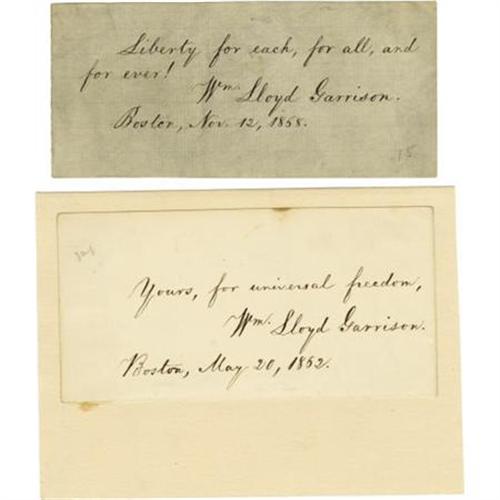 Liberty for each, for all, and
for ever!
Wm. Lloyd Garrison.
Boston, Nov. 12, 1858.
15
Yours, for universal freedom,
Wm. Lloyd Garrison.
Boston, May 20, 1862.